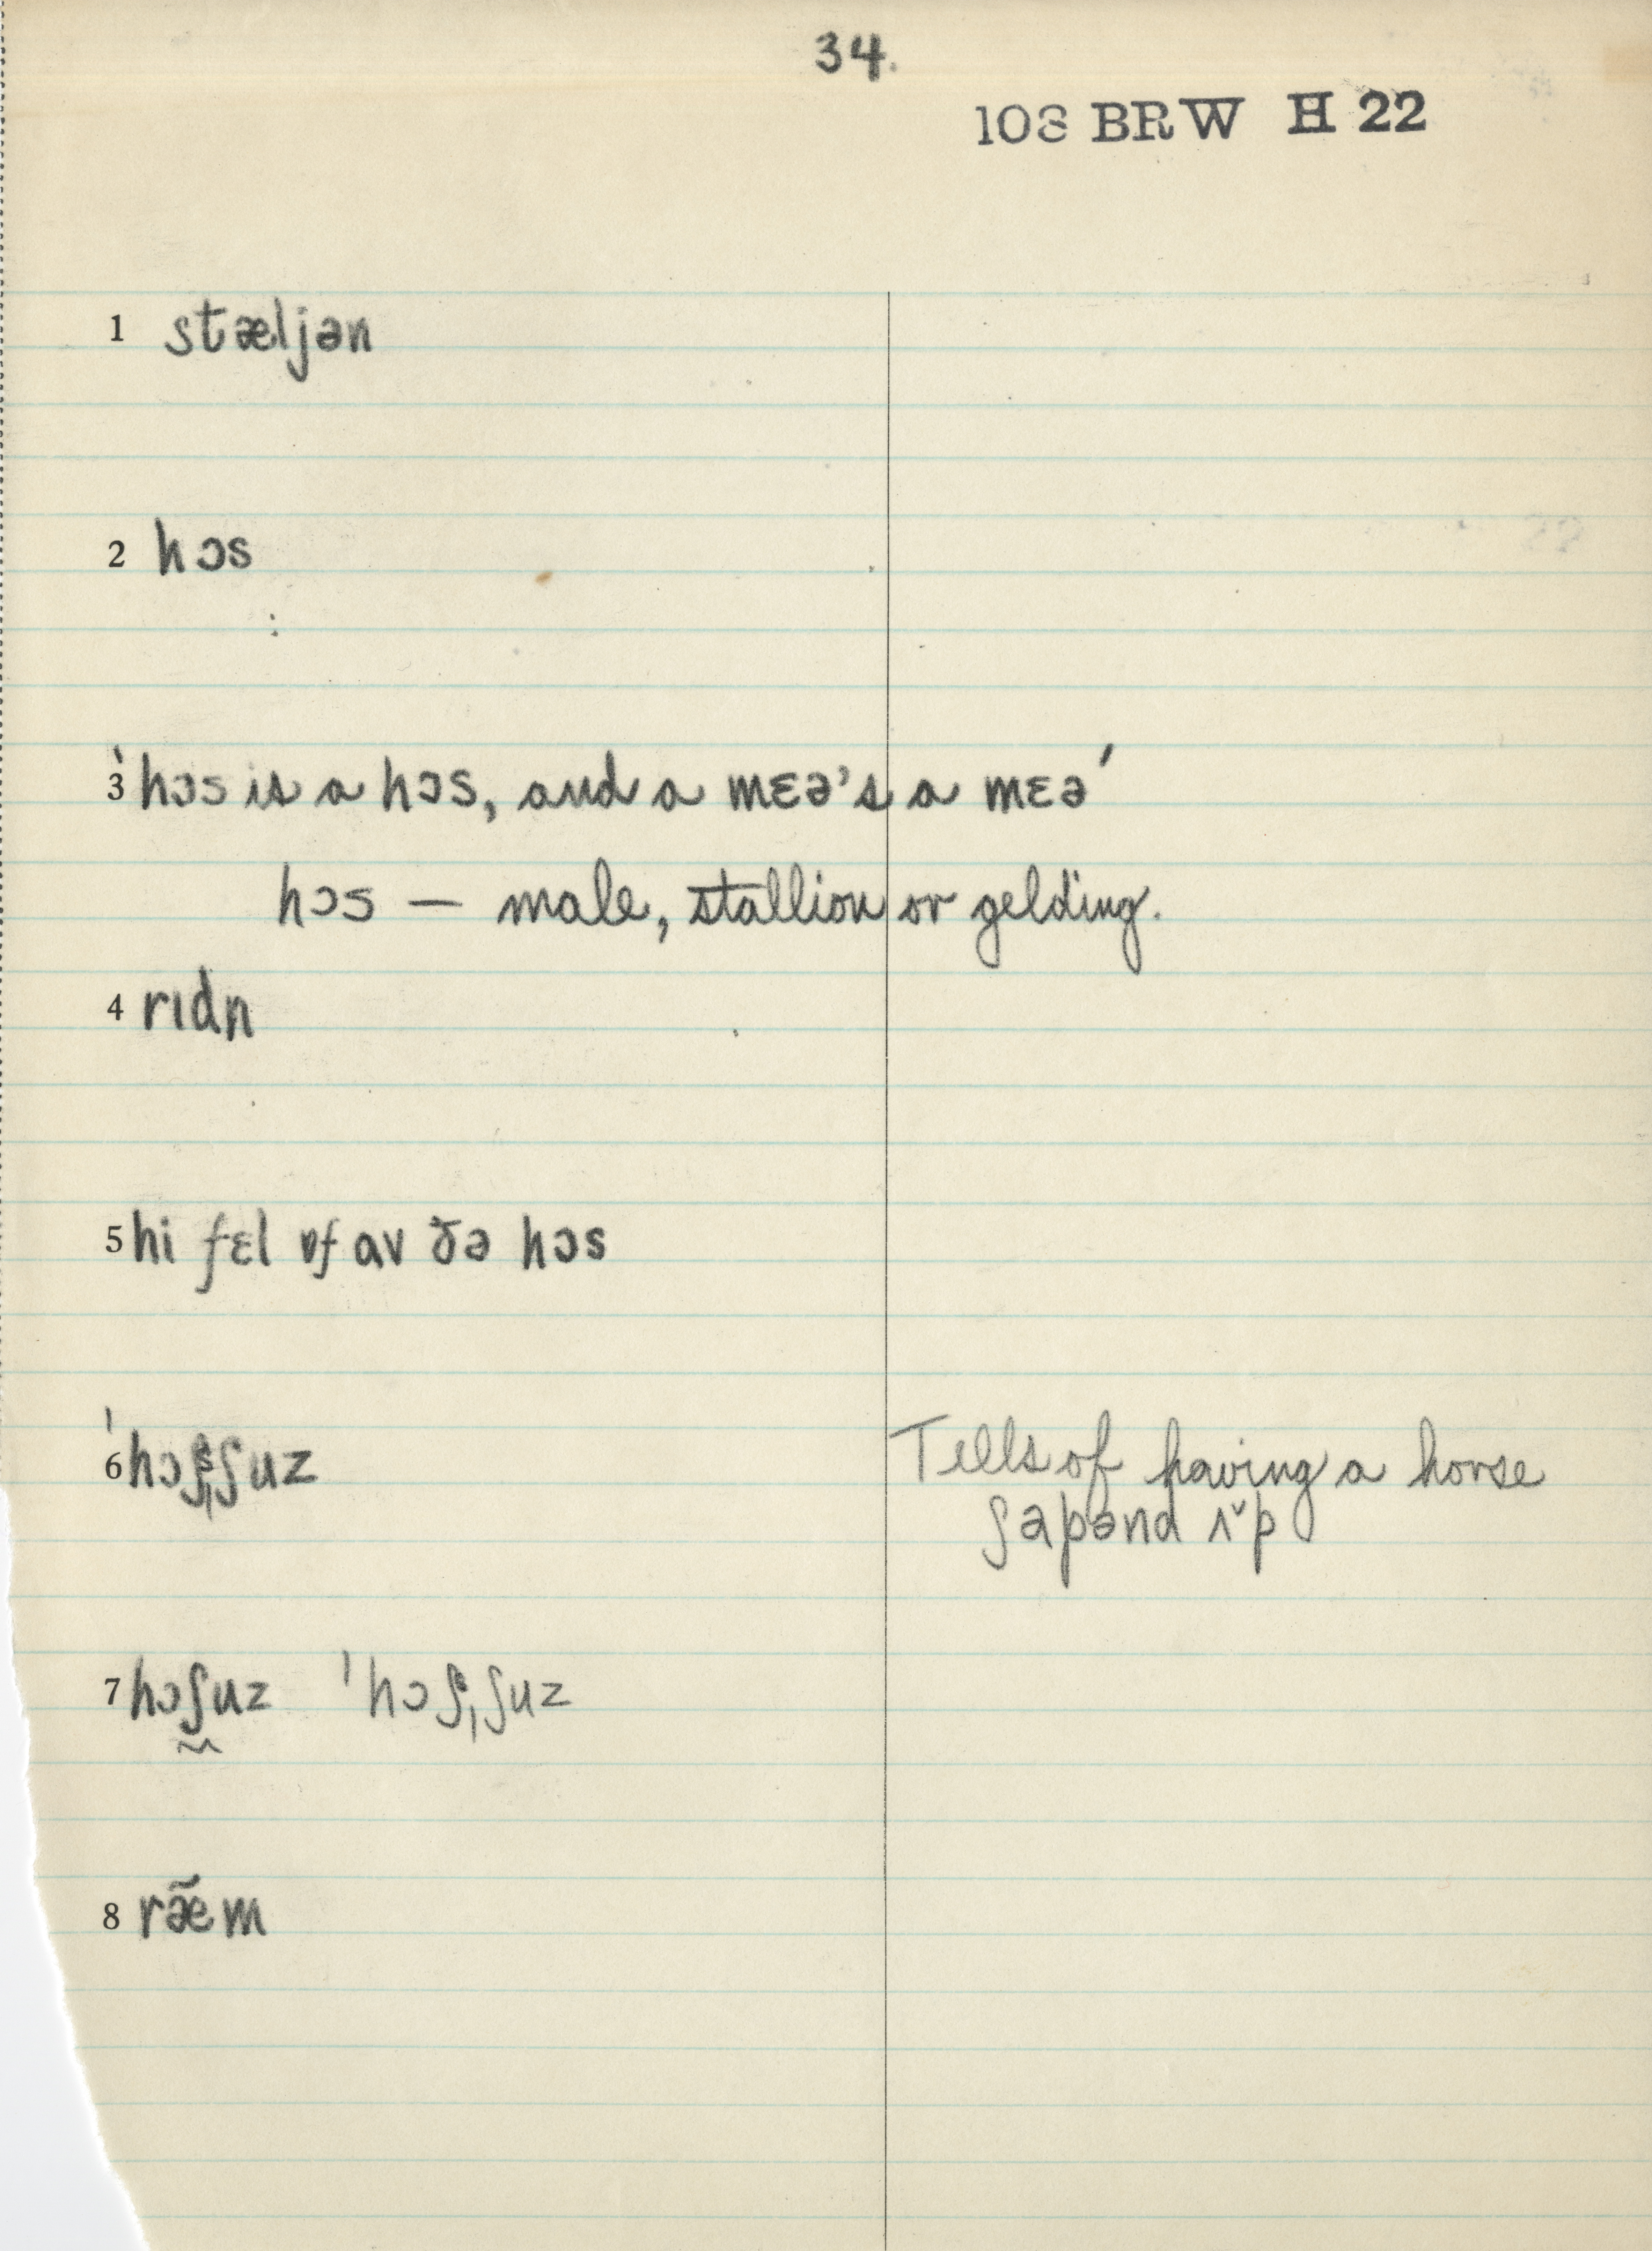 34.
108 BRW H 22
1 stæljən
2 hɔs
3 ‵hɔs is a hɔs, and a mɛə's a mɛə′
hɔs — male, stallion or gelding.
4 rɪdn
5 hi fɛl ɒf av ðə hɔs
6 ˈhɔʃˌʃuz
Tells of having a horse
ʃapənd ʌ̌p
7 hɔʃuz ˈhɔʃˌʃuz
8 ræ̃m